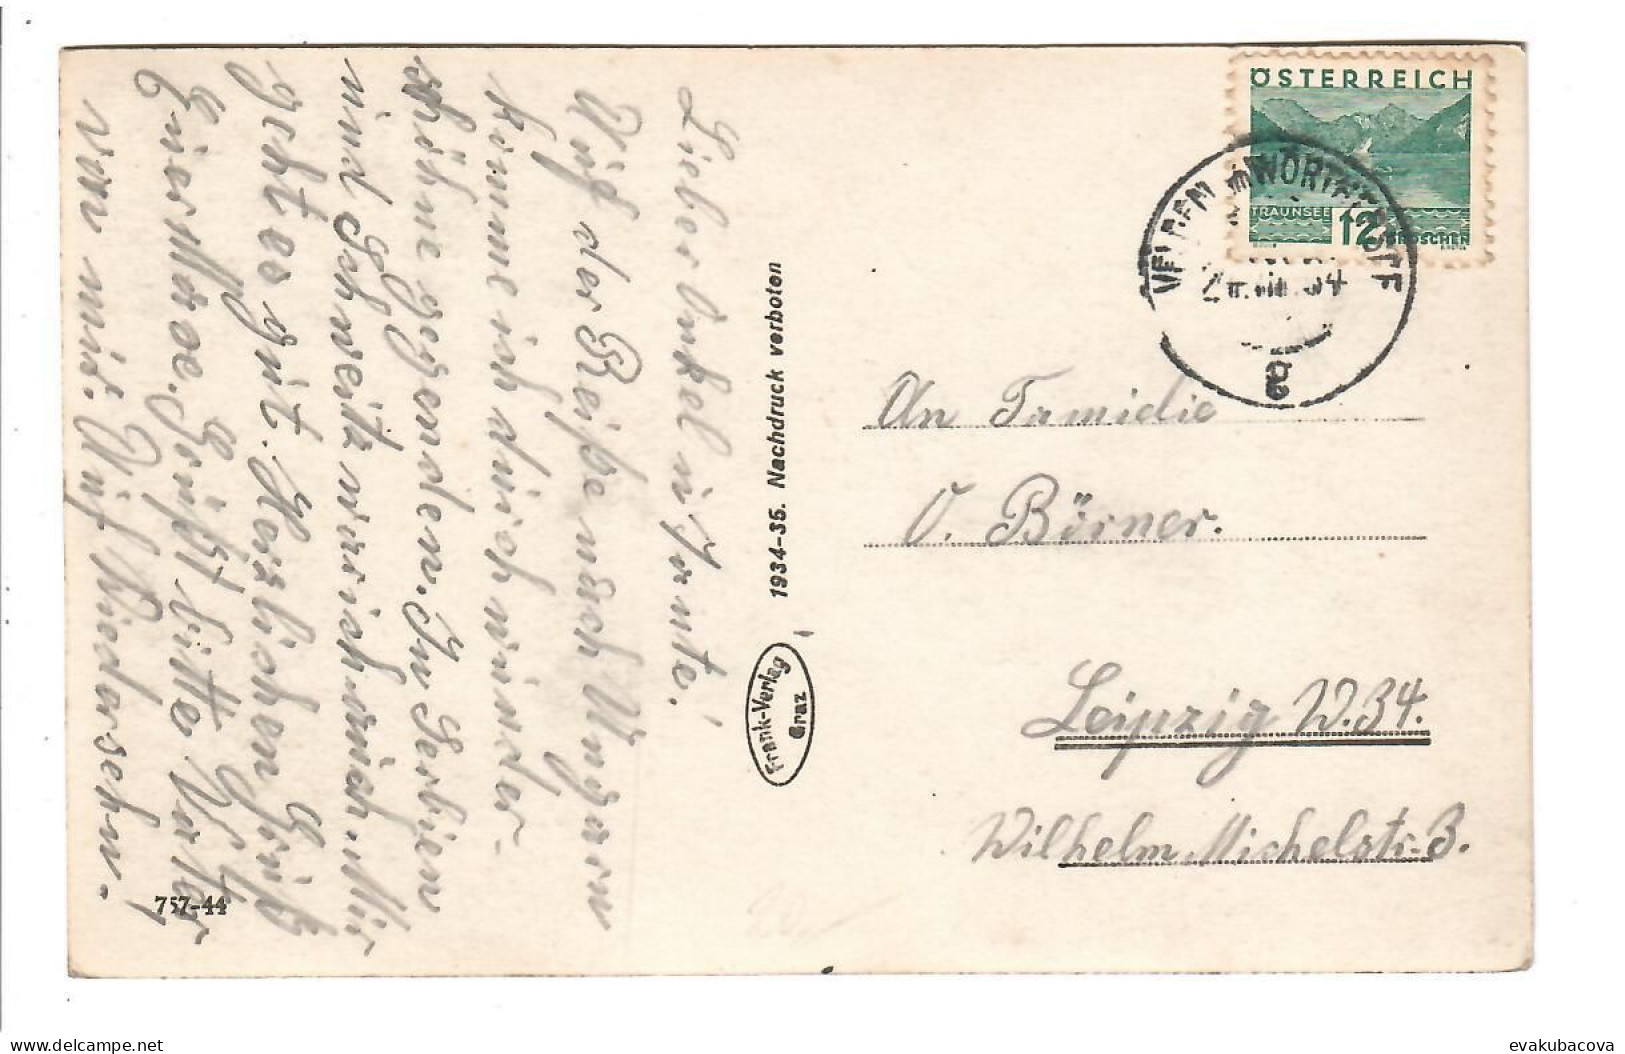 Lieber Onkel u Tante!
Auf der Reise nach Ungarn
komme ich durch wunder-
schöne gegenden. In Serbien
und Schweitz wurich auch. Mir
geht es gut. Herzlichen Gruß
Euer Max. Grüßt bitte Vater
von mir. Auf Wiedersehn.
757-44
1934-35. Nachdruck verboten
Frank-Verlag
Graz
ÖSTERREICH
TRAUNSEE
12 GROSCHEN
VELDEN AM WÖRTHERSEE
VIII.34
a
An Familie
O. Börner.
Leipzig W.34.
Wilhelm Michelstr. 3.
delcampe.net
evakubacova